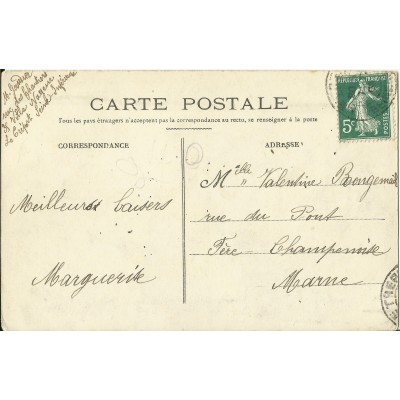 rue des
CARTE POSTALE
Tous les pays étrangers n'acceptent pas la correspondance au recto, se renseigner à la poste
CORRESPONDANCE
ADRESSE
REPUBLIQUE FRANÇAISE
5c
POSTES
Meilleurs baisers
Marguerite
Melle Valentine
rue du Pont
Fère-Champenoise
Marne